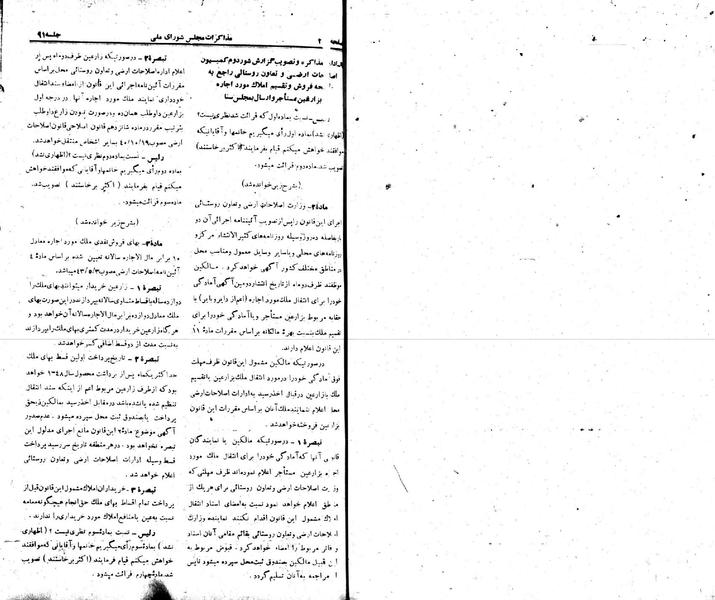 صفحه ۲ مذاکرات مجلس شورای ملی جلسه ۹۱
مذاکره و تصویب گزارش شور دوم کمیسیون
اصلاحات ارضی و تعاون روستائی راجع به
فروش و تقسیم املاک مورد اجاره
بزارعین مستأجر و ارسال به مجلس سنا
نسبت بماده اول که قرائت شد نظری نیست؟
(اظهاری نشد) ماده اول رأی میگیریم خانمها و آقایانیکه
موافقند خواهش میکنم قیام بفرمایند (اکثر برخاستند)
تصویب شد. ماده دوم قرائت میشود.
(بشرح زیر خوانده شد)
مادهٔ ۲- وزارت اصلاحات ارضی و تعاون روستائی
اجرای این قانون را پس از تصویب آئیننامه اجرائی آن دو
بار بفاصله ده روز وسیله روزنامه‌های کثیرالانتشار مرکز و
روزنامه‌های محلی و یا سایر وسایل معمول و مناسب محل
در مناطق مختلف کشور آگهی خواهد کرد. مالکین
موظفند ظرف دو ماه از تاریخ انتشار دومین آگهی آمادگی
خود را برای انتقال ملک مورد اجاره (اعم از دایر و بایر) با
حقابه مربوط بزارعین مستأجر و یا آمادگی خود را برای
تقسیم ملک بنسبت بهره مالکانه بر اساس مقررات مادهٔ ۱
این قانون اعلام دارند.
در صورتیکه مالکین مشمول این قانون ظرف مهلت
فوق آمادگی خود را در مورد انتقال ملک بزارعین یا تقسیم
ملک با زارعین در قبال اخذ رسید به ادارات اصلاحات ارضی
محل اعلام ننمایند ملک آنان بر اساس مقررات این قانون
بزارعین فروخته خواهد شد.
تبصرهٔ ۱ - در صورتیکه مالکین یا نمایندگان
قانونی آنها که آمادگی خود را برای انتقال ملک مورد
اجاره بزارعین مستأجر اعلام نموده‌اند ظرف مهلتی که
وزارت اصلاحات ارضی و تعاون روستائی برای هر یک از
مناطق اعلام خواهد نمود نسبت به امضای اسناد انتقال
املاک مشمول این قانون اقدام نکنند نماینده وزارت
اصلاحات ارضی و تعاون روستائی بقائم مقامی آنان اسناد
و دفاتر مربوط را امضاء خواهد کرد. قبوض مربوط به
این قبیل مالکین بصندوق ثبت محل سپرده میشود تا پس
از مراجعه به آنان تسلیم گردد.
تبصرهٔ ۲ - در صورتیکه زارعین ظرف دو ماه پس از
اعلام اداره اصلاحات ارضی و تعاون روستائی محل بر اساس
مقررات آئیننامه اجرائی این قانون از امضاء سند انتقال
خودداری نمایند ملک مورد اجاره آنها در درجه اول
بزارعین داوطلب همان ده و در صورت نبودن زارع داوطلب
بترتیب مقرر در ماده شانزدهم قانون اصلاحی قانون اصلاحات
ارضی مصوب ۴۰/۱۰/۱۹ بسایر اشخاص منتقل خواهد شد.
رئیس - نسبت بماده دوم نظری نیست؟ (اظهاری نشد)
ماده دوم رأی میگیریم خانمها و آقایانی که موافقند خواهش
میکنم قیام بفرمایند (اکثر برخاستند) تصویب شد.
ماده سوم قرائت میشود.
(بشرح زیر خوانده شد)
مادهٔ ۳- بهای فروش نقدی ملک مورد اجاره معادل
۱۰ برابر مال الاجاره سالانه تعیین شده بر اساس مادهٔ ۴
آئین‌نامه اصلاحات ارضی مصوب ۴۳/۵/۳ میباشد.
تبصرهٔ ۱ - زارعین خریدار میتوانند بهای ملک را
دوازده ساله با قساط متساوی سالانه بپردازند در این صورت بهای
ملک معادل دوازده برابر مال الاجاره سالانه آن خواهد بود و
هر گاه زارعین خریدار در مدت کمتری بهای ملک را بپردازند
به نسبت مدت از دو قسط اضافی کسر خواهد شد.
تبصرهٔ ۲ - تاریخ پرداخت اولین قسط بهای ملک
حداکثر یکماه پس از برداشت محصول سال ۱۳۴۸ خواهد
بود که از طرف زارعین مربوط اعم از اینکه سند انتقال
تنظیم شده یا نشده باشد در مقابل اخذ رسید بمالکین ذیحق
پرداخت یا بصندوق ثبت محل سپرده میشود. عدم صدور
آگهی موضوع ماده ۲ این قانون مانع اجرای مدلول این
تبصره نخواهد بود. در هر منطقه تاریخ سررسید پرداخت
قسط وسیله ادارات اصلاحات ارضی و تعاون روستائی
اعلام خواهد شد.
تبصرهٔ ۳ - خریداران املاک مشمول این قانون قبل از
پرداخت تمام اقساط بهای ملک حق انجام هیچگونه معامله
نسبت به عین یا منافع املاک مورد خریداری را ندارند.
رئیس - نسبت بماده سوم نظری نیست؟ (اظهاری
نشد) بماده سوم رأی میگیریم خانمها و آقایانی که موافقند
خواهش میکنم قیام فرمایند (اکثر برخاستند) تصویب
شد. ماده چهارم قرائت میشود.